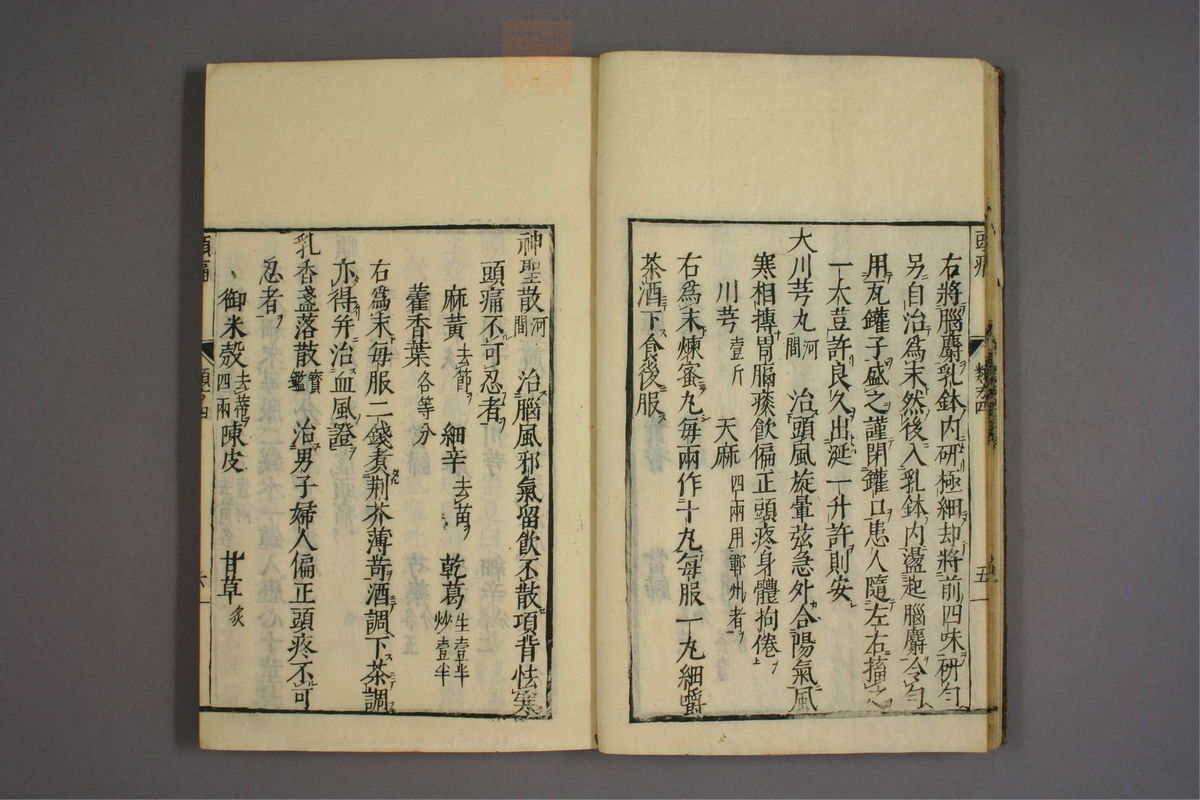 頭痛
類㕝四
五
右將腦麝乳鉢内研極細却將前四味研勻
另自治爲末然後入乳鉢内盪起腦麝令勻
用瓦鑵子盛之謹閉鑵口患人隨左右搐之
一大荳許良久出涎一升許則安
大川芎丸河間 治頭風旋暈弦急外合陽氣風
寒相摶胃膈痰飲偏正頭疼身體拘倦
川芎壹斤 天麻四兩用鄆州者
右為末煉蜜丸每兩作十丸每服一丸細嚼
茶酒下食後服
神聖散河間 治腦風邪氣留飲不散項背怯寒
頭痛不可忍者
麻黃去節 細辛去苗 乾葛生壹半炒壹半
藿香葉各等分
右爲末每服二錢煮荆芥薄荷酒調下茶調
亦得幷治血風證
乳香盞落散寳鑑 治男子婦人偏正頭疼不可
忍者
御米殼去蒂四兩 陳皮 甘草炙
頭痛
類㕝四
六